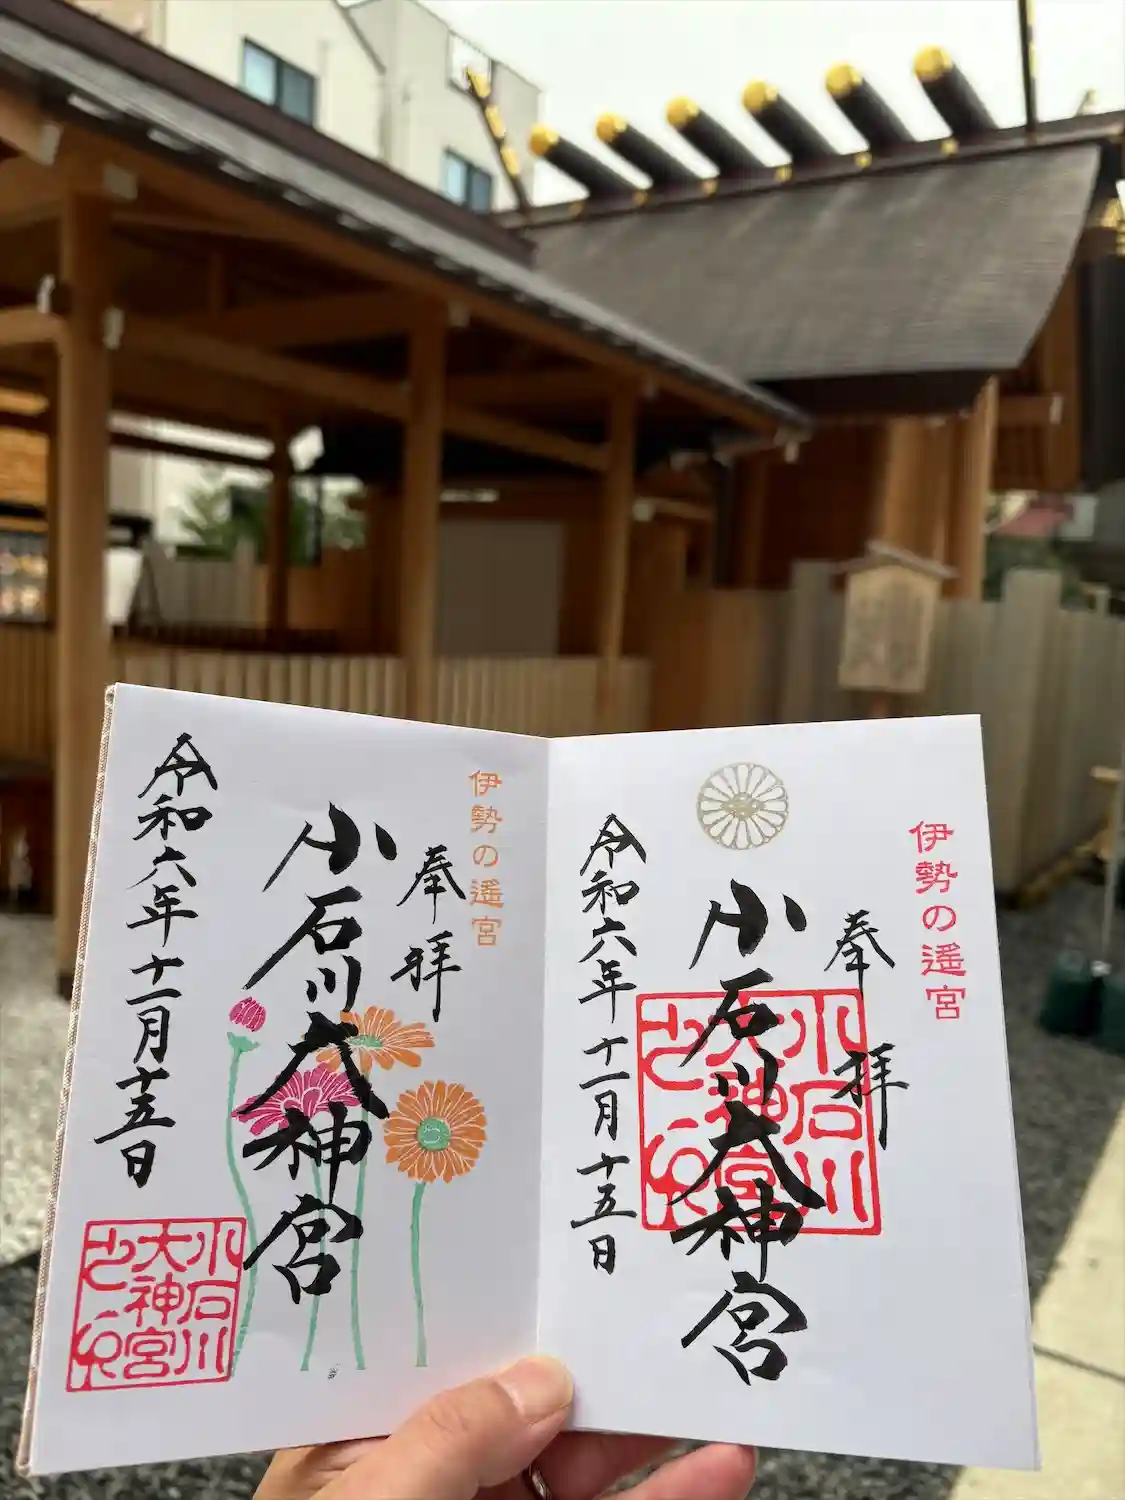 伊勢の遥宮
奉拝
小石川大神宮
小石川
大神宮
令和六年十一月十五日
伊勢の遥宮
奉拝
小石川大神宮
令和六年十一月十五日
小石川
大神宮